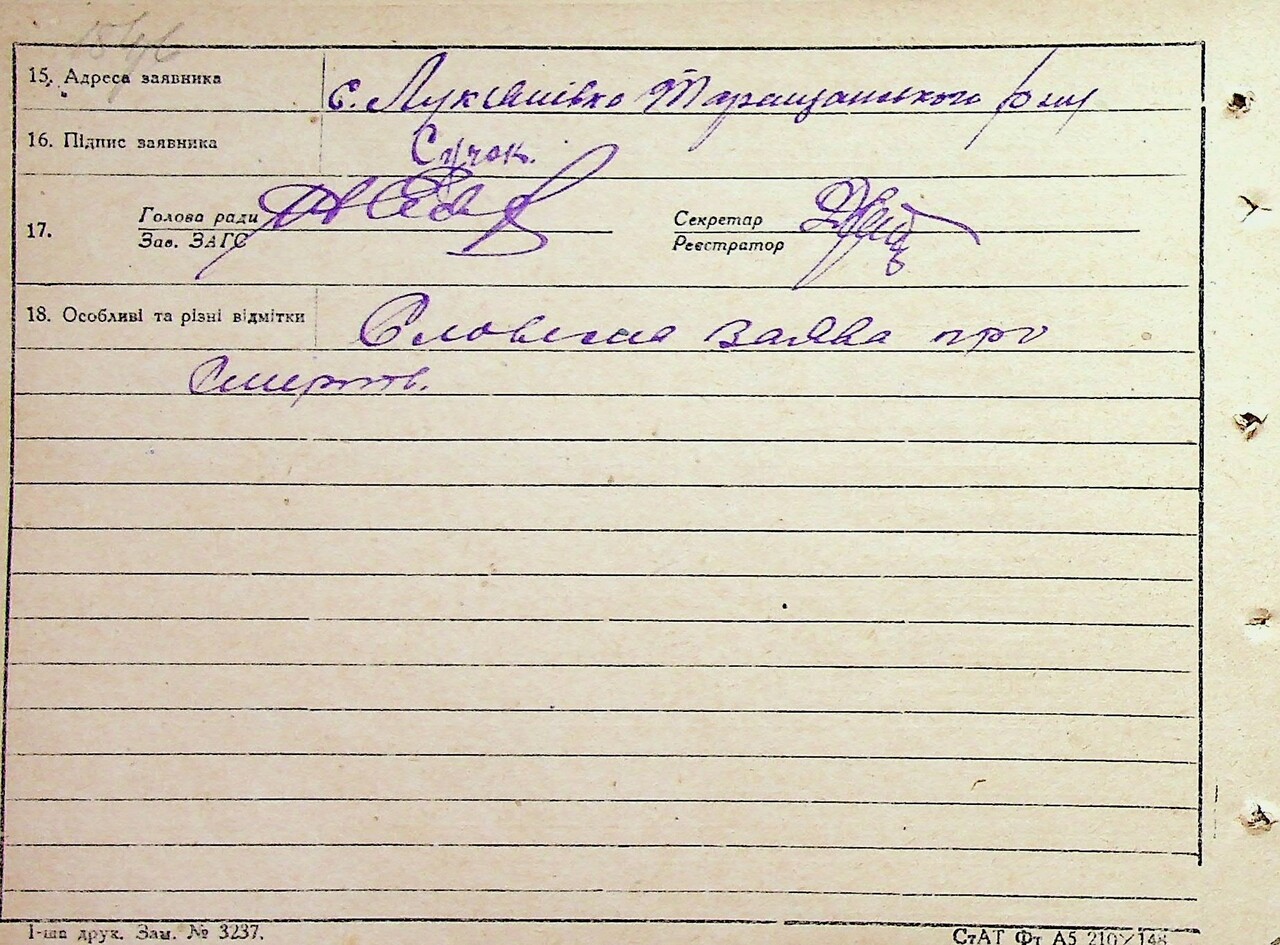 1546
15. Адреса заявника с. Лукʼянівка Таращанського р-ну
16. Підпис заявника Сучок.
17. Голова ради Секретар
Зав. ЗАГС Реєстратор
18. Особливі та різні відмітки Словесна заява про
смерть.
І-ша друк. Зам. № 3237. СтАТ Фт А5 210×148